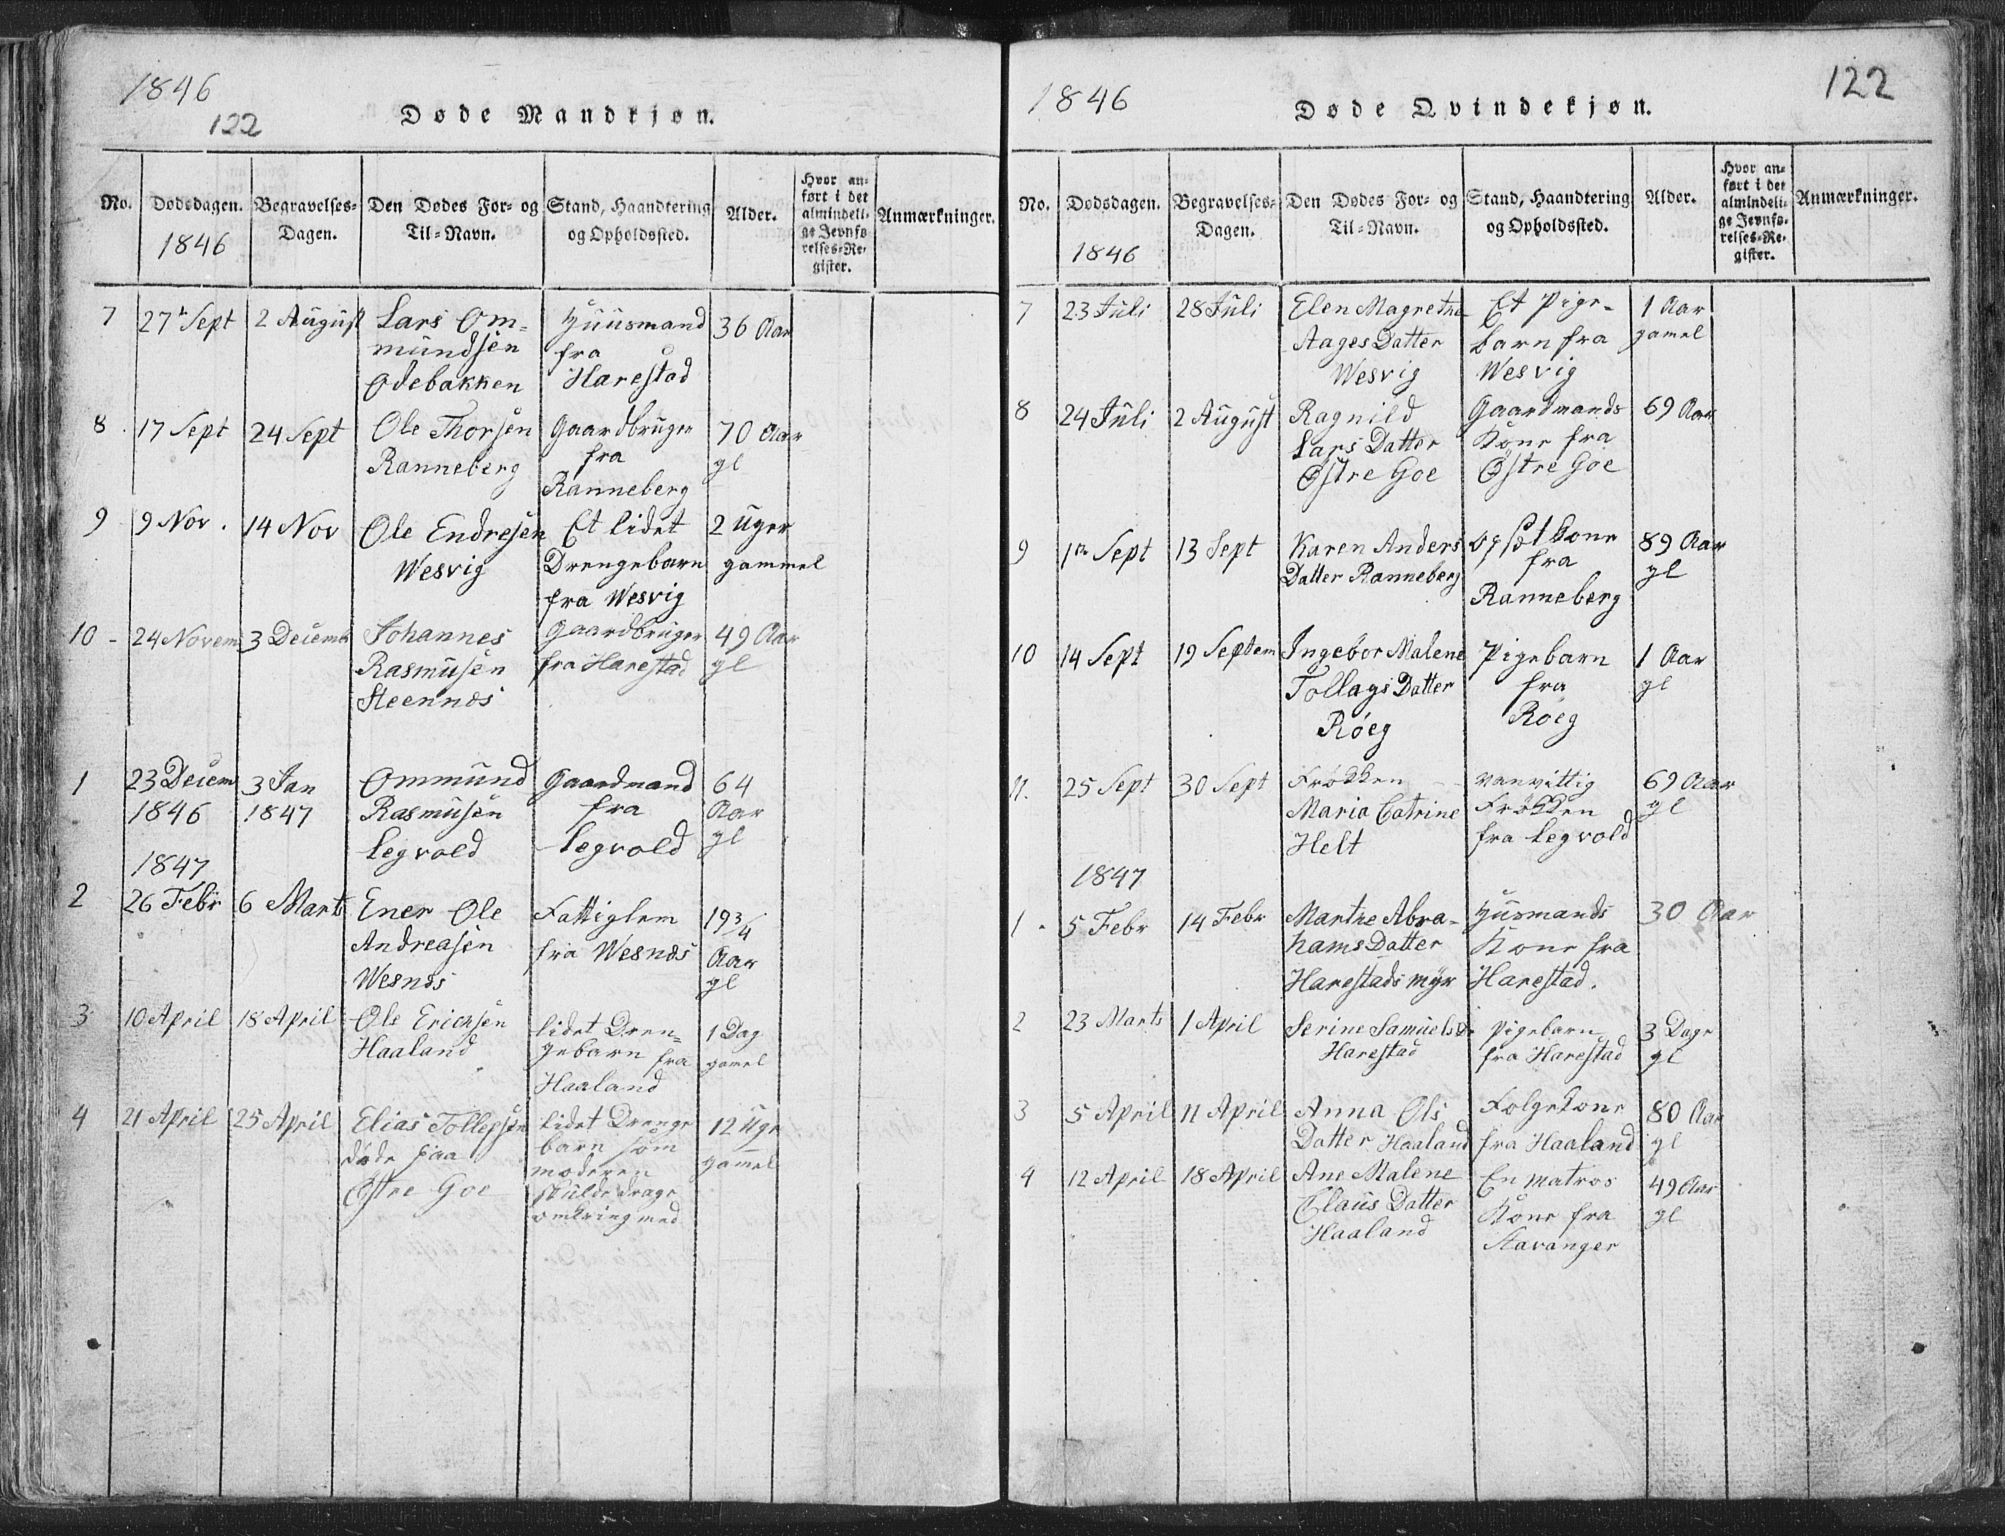 1846
122
Døde Mandkjøn.
No.
Dødsdagen.
1846
Begravelses-
Dagen.
Den Dødes For- og
Til-Navn.
Stand, Haandtering
og Opholdssted.
Alder.
Hvor an-
ført i det
almindeli-
ge Jevnfø
relses-Re-
gister.
Anmærkninger.
7
27 Sept
2 August
Lars Om-
mundsen
Odebakken
Huusmand
fra
Harestad
36 Aar
8
17 Sept
24 Sept
Ole Thorsen
Ranneberg
Gaardbruger
fra
Ranneberg
70 Aar
gl
9
9 Nov.
14 Nov
Ole Endresen
Wesvig
Et lidet
Drengebarn
fra Wesvig
2 Uger
gammel
10
24 Novem
3 Decemb
Johannes
Rasmusen
Steennæs
Gaardbruger
fra Harestad
49 Aar
gl
1
23 Decem
1846
3 Jan
1847
Ommund
Rasmusen
Legvold
Gaardmand
fra
Legvold
64
Aar
gl
1847
2
26 Febr
6 Marts
Ener Ole
Andreasen
Wesnæs
Fattiglem
fra Wesnæs
19 3/4
Aar
gl
3
10 April
18 April
Ole Ericksen
Haaland
lidet Dren-
gebarn fra
Haaland
1 Dag
gamel
4
21 April
25 April
Elias Tollefsen
døde paa
Østre Goe
Lidet Drenge
barn som
moderen
skulde drage
omkring med
12 Uge
gamel
1846
122
Døde Qvindekjøn.
No.
Dødsdagen.
1846
Begravelses-
Dagen.
Den Dødes For- og
Til-Navn.
Stand, Haandtering
og Opholdssted.
Alder.
Hvor an-
ført i det
almindeli-
ge Jevnfø-
relses-Re-
gister.
Anmærkninger.
7
23 Juli
28 Juli
Elen Magrethe
Aages Datter
Wesvig
Et Pige-
barn fra
Wesvig
1 Aar
gamel
8
24 Juli
2 August
Ragnild
Lars Datter
Østre Goe
Gaardmands
Kone fra
Østre Goe
69 Aar
9
1 Sept
13 Sept
Karen Anders
Datter Ranneberg
kone
fra
Ranneberg
89 Aar
gl
10
14 Sept
19 Septem
Ingebor Malene
Tollags Datter
Röeg
Pigebarn
fra
Röeg
1 Aar
gl
11.
25 Sept
30 Sept
Frökken
Maria Catrine
Helt
vanvittig
Frökken
fra Legvold
69 Aar
gl
1847
1
5 Febr
14 Febr
Marthe Abra-
hams Datter
Harestads myr
Husmands
Kone fra
Harestad.
30 Aar
2
23 Marts
1 April
Serine Samuels D
Harestad
Pigebarn
fra Harestad
3 Dage
gl
3
5 April
11 April
Anna Ols
Datter Haaland
Folgekone
fra Haaland
80 Aar
gl
4
12 April
18 April
Ane Malene
Claus Datter
Haaland
En matros
Kone fra
Stavanger
49 Aar
gl